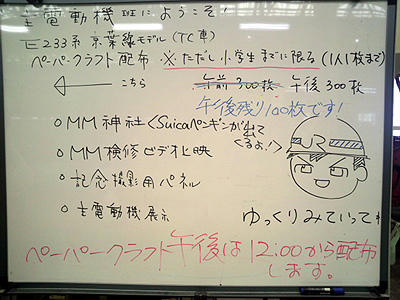 主電動機班にようこそ!
E233系京葉線モデル(TC車)
ペーパークラフト配布 ※ただし小学生までに限る(1人1枚まで)
← こちら
午前300枚 午後300枚
午後残り100枚です!
○MM神社(Suicaペンギンが出てくるよ!)
○MM検修ビデオ上映
○記念撮影用パネル
○主電動機展示
JR
ゆっくりみていってネ
ペーパークラフト午後は12:00から配布
します。